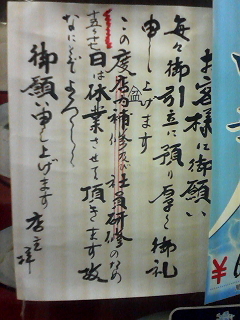 お客様に御願い
毎々御引立に預り厚く御礼
申し上げます
この度店内補修及び社員研修のため
日は休業させて頂きます故
なにとぞよろしく
御願い申し上げます
店主拝
¥